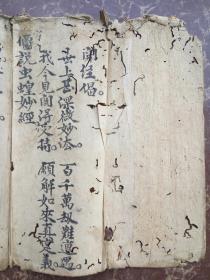 開经偈
無上甚深微妙法。百千萬劫難遭遇。
我今見聞得受持。願解如來真實義。
佛說虫蝗妙經